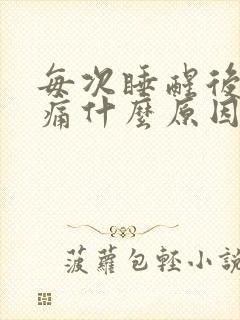 每次睡醒後
痛什麼原因
菠蘿包輕小說